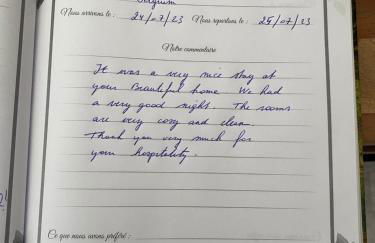 Belgium
Nous arrivons le : 24/07/23 Nous repartons le : 25/07/23
Notre commentaire
It was a very nice stay at
your Beautiful home. We had
a very good night. The rooms
are very cosy and clean.
Thank you very much for
your hospitality.
Ce que nous avons préféré :